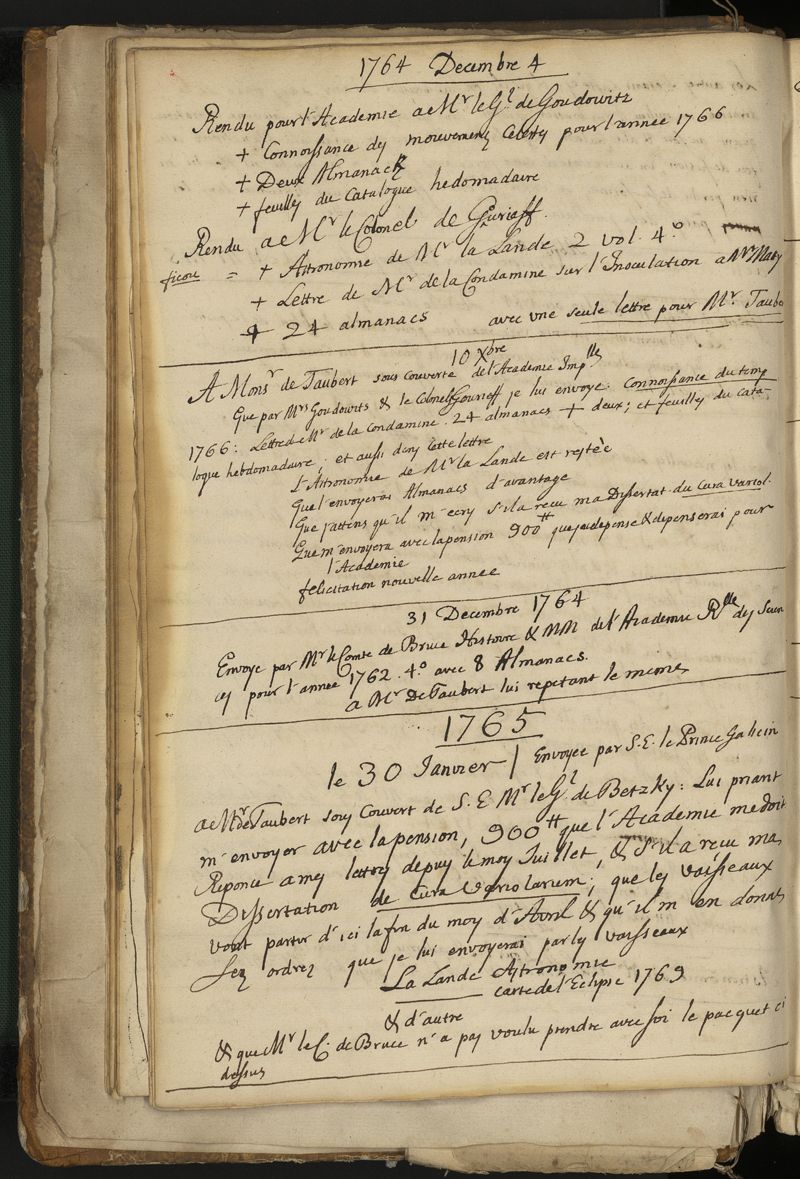 1764 Decembre 4
Rendu pour l'Academie a Mr le Gl de Goudowitz
+ Connoissance des mouvemens Celestes pour l'année 1766
+ Deux Almanacz
+ feuilles du Catalogue hedomadaire
Rendu a Mr le Colonel de Guriaff.
= + Astronomie de Mr la Lande 2 vol. 4.°
+ Lettre de Mr de la Condamine sur l'Inoculation a Mr Maty
+ 24 almanacs avec une seule lettre pour Mr. Taubert
10 Xbre
A Monsr de Taubert sous couverte de l'Academie Implle
Que par Mrs Goudowits & le Colonel Gourieff je lui envoye. Connoissance du temp
1766: Lettre de Mr de la Condamine. 24 almanacs + deux; et feuilles du cata-
logue hebdomadaire; et aussi dans cette lettre
L'Astronomie de Mr la Lande est restée
Que l'envoyerai Almanacs d'avantage
Que j'attens qu'il m'ecry s'il a recu ma Dissertat. du Cura variol.
Que m'envoyera avec la pension 900 tt que j'ai depense & depenserai pour
l'Academie
felicitation nouvelle année
31 Decembre 1764
Envoye par Mr le Comte de Bruce Histoire & MM de l'Academie Rlle des Scien
ces pour l'année 1762. 4.° avec 8 Almanacs.
a Mr De Taubert lui repetant le meme
1765
le 30 Janvier / Envoyee par S.E. le Prince Galicin
a Mr de Taubert sous Couvert de S. E. Mr le Gl de Betzky: Lui priant
m'envoyer avec la pension, 900 tt que l'Academie me doit
Reponce a mes lettres depuy le moy Juillet, & s'il a recu ma
Dissertation de Cura Variolarum; que les vaisseaux
vont partir d'ici la fin du moy d'Avril & qu'il m'en donat
ses ordrez que je lui envoyerai par ly vaisseaux
La Lande Astronomie
carte de l'Eclipse 1769
& d'autre
& que Mr le C. de Bruce n'a pas voulu prendre avec soi le pacquet ci
dessus